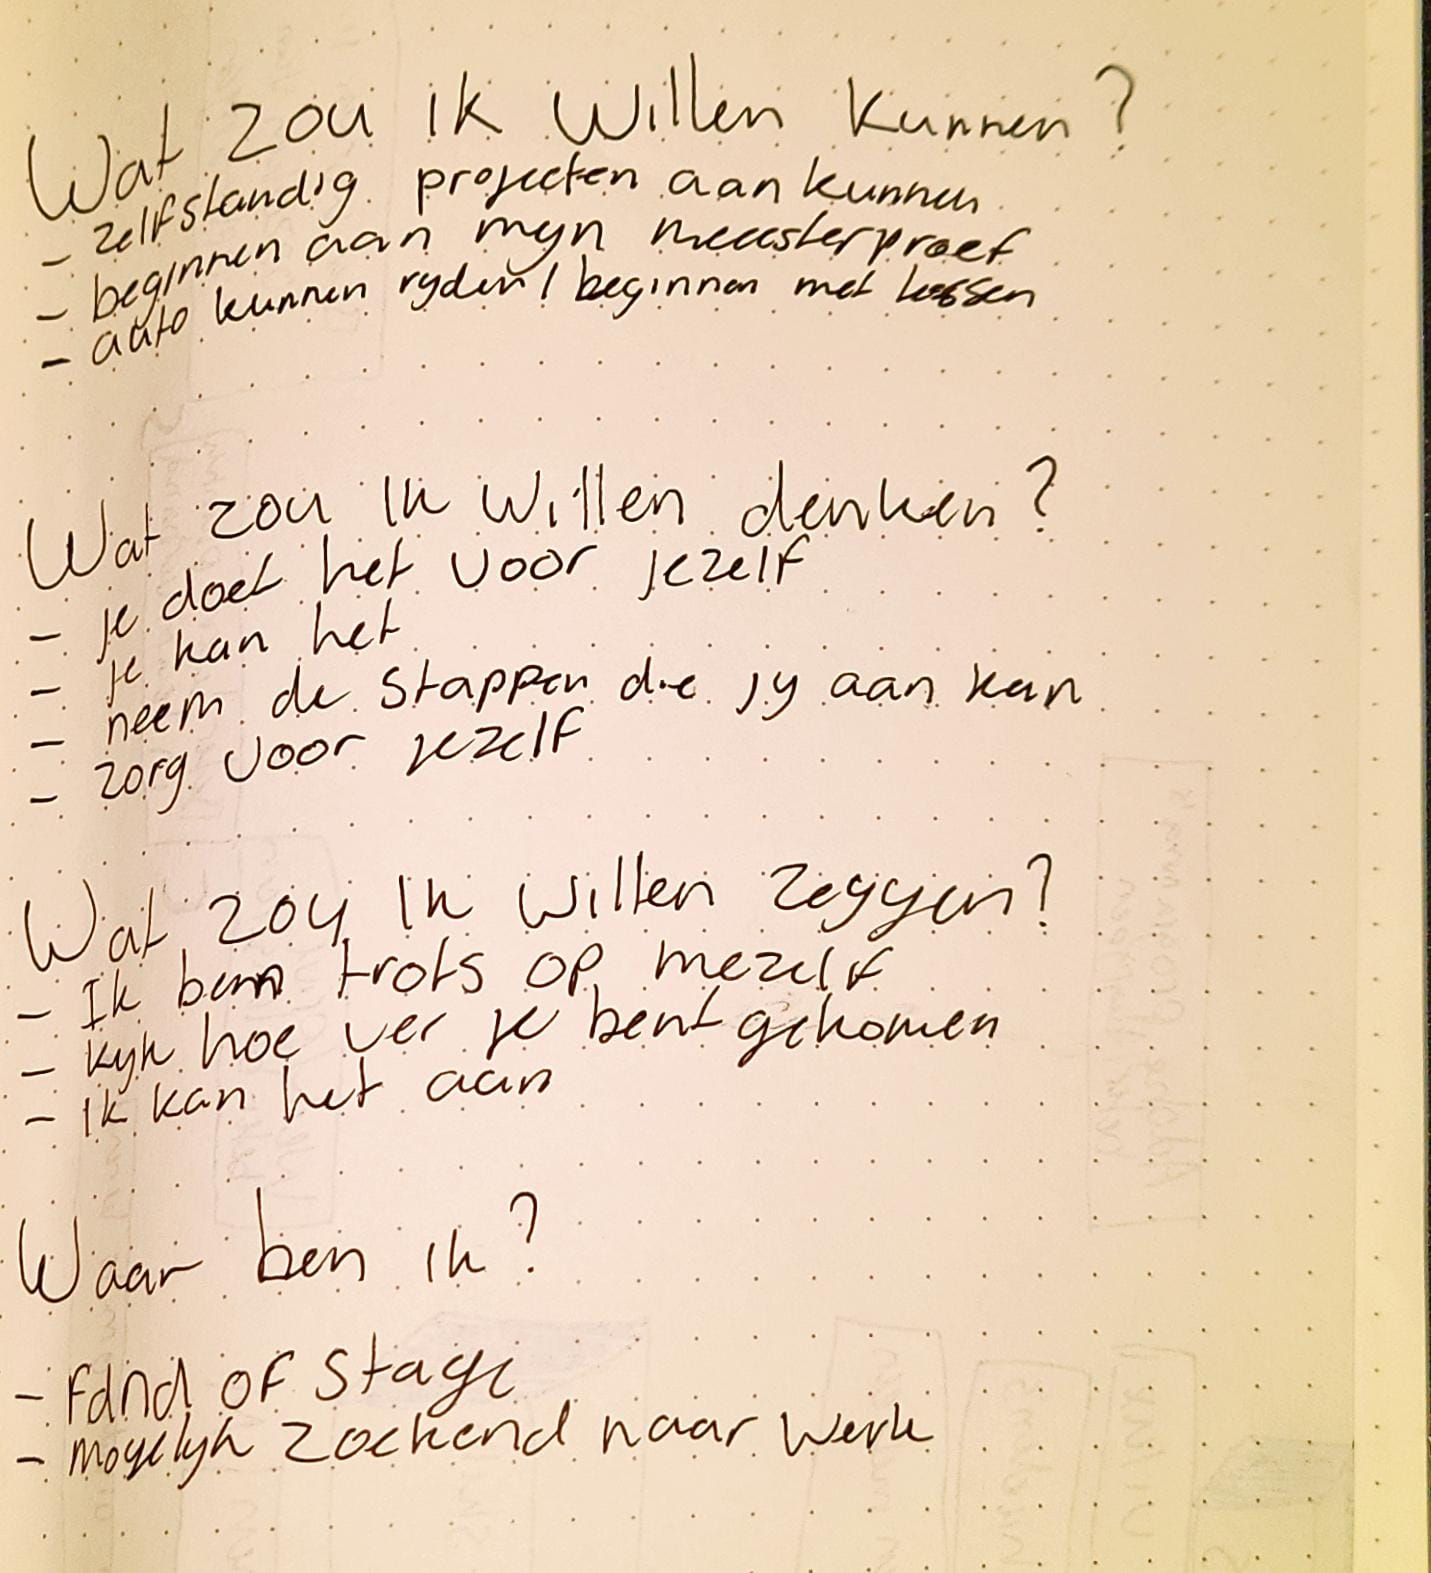 Wat zou ik willen kunnen?
- zelfstandig projecten aan kunnen
- beginnen aan mijn meesterproef
- auto kunnen rijden / beginnen met lessen
Wat zou ik willen denken?
- je doet het voor jezelf
- je kan het
- neem de stappen die jij aan kan
- zorg voor jezelf
Wat zou ik willen zeggen?
- Ik ben trots op mezelf
- kijk hoe ver je bent gekomen
- ik kan het aan
Waar ben ik?
- of stage
- mogelijk zoekend naar werk